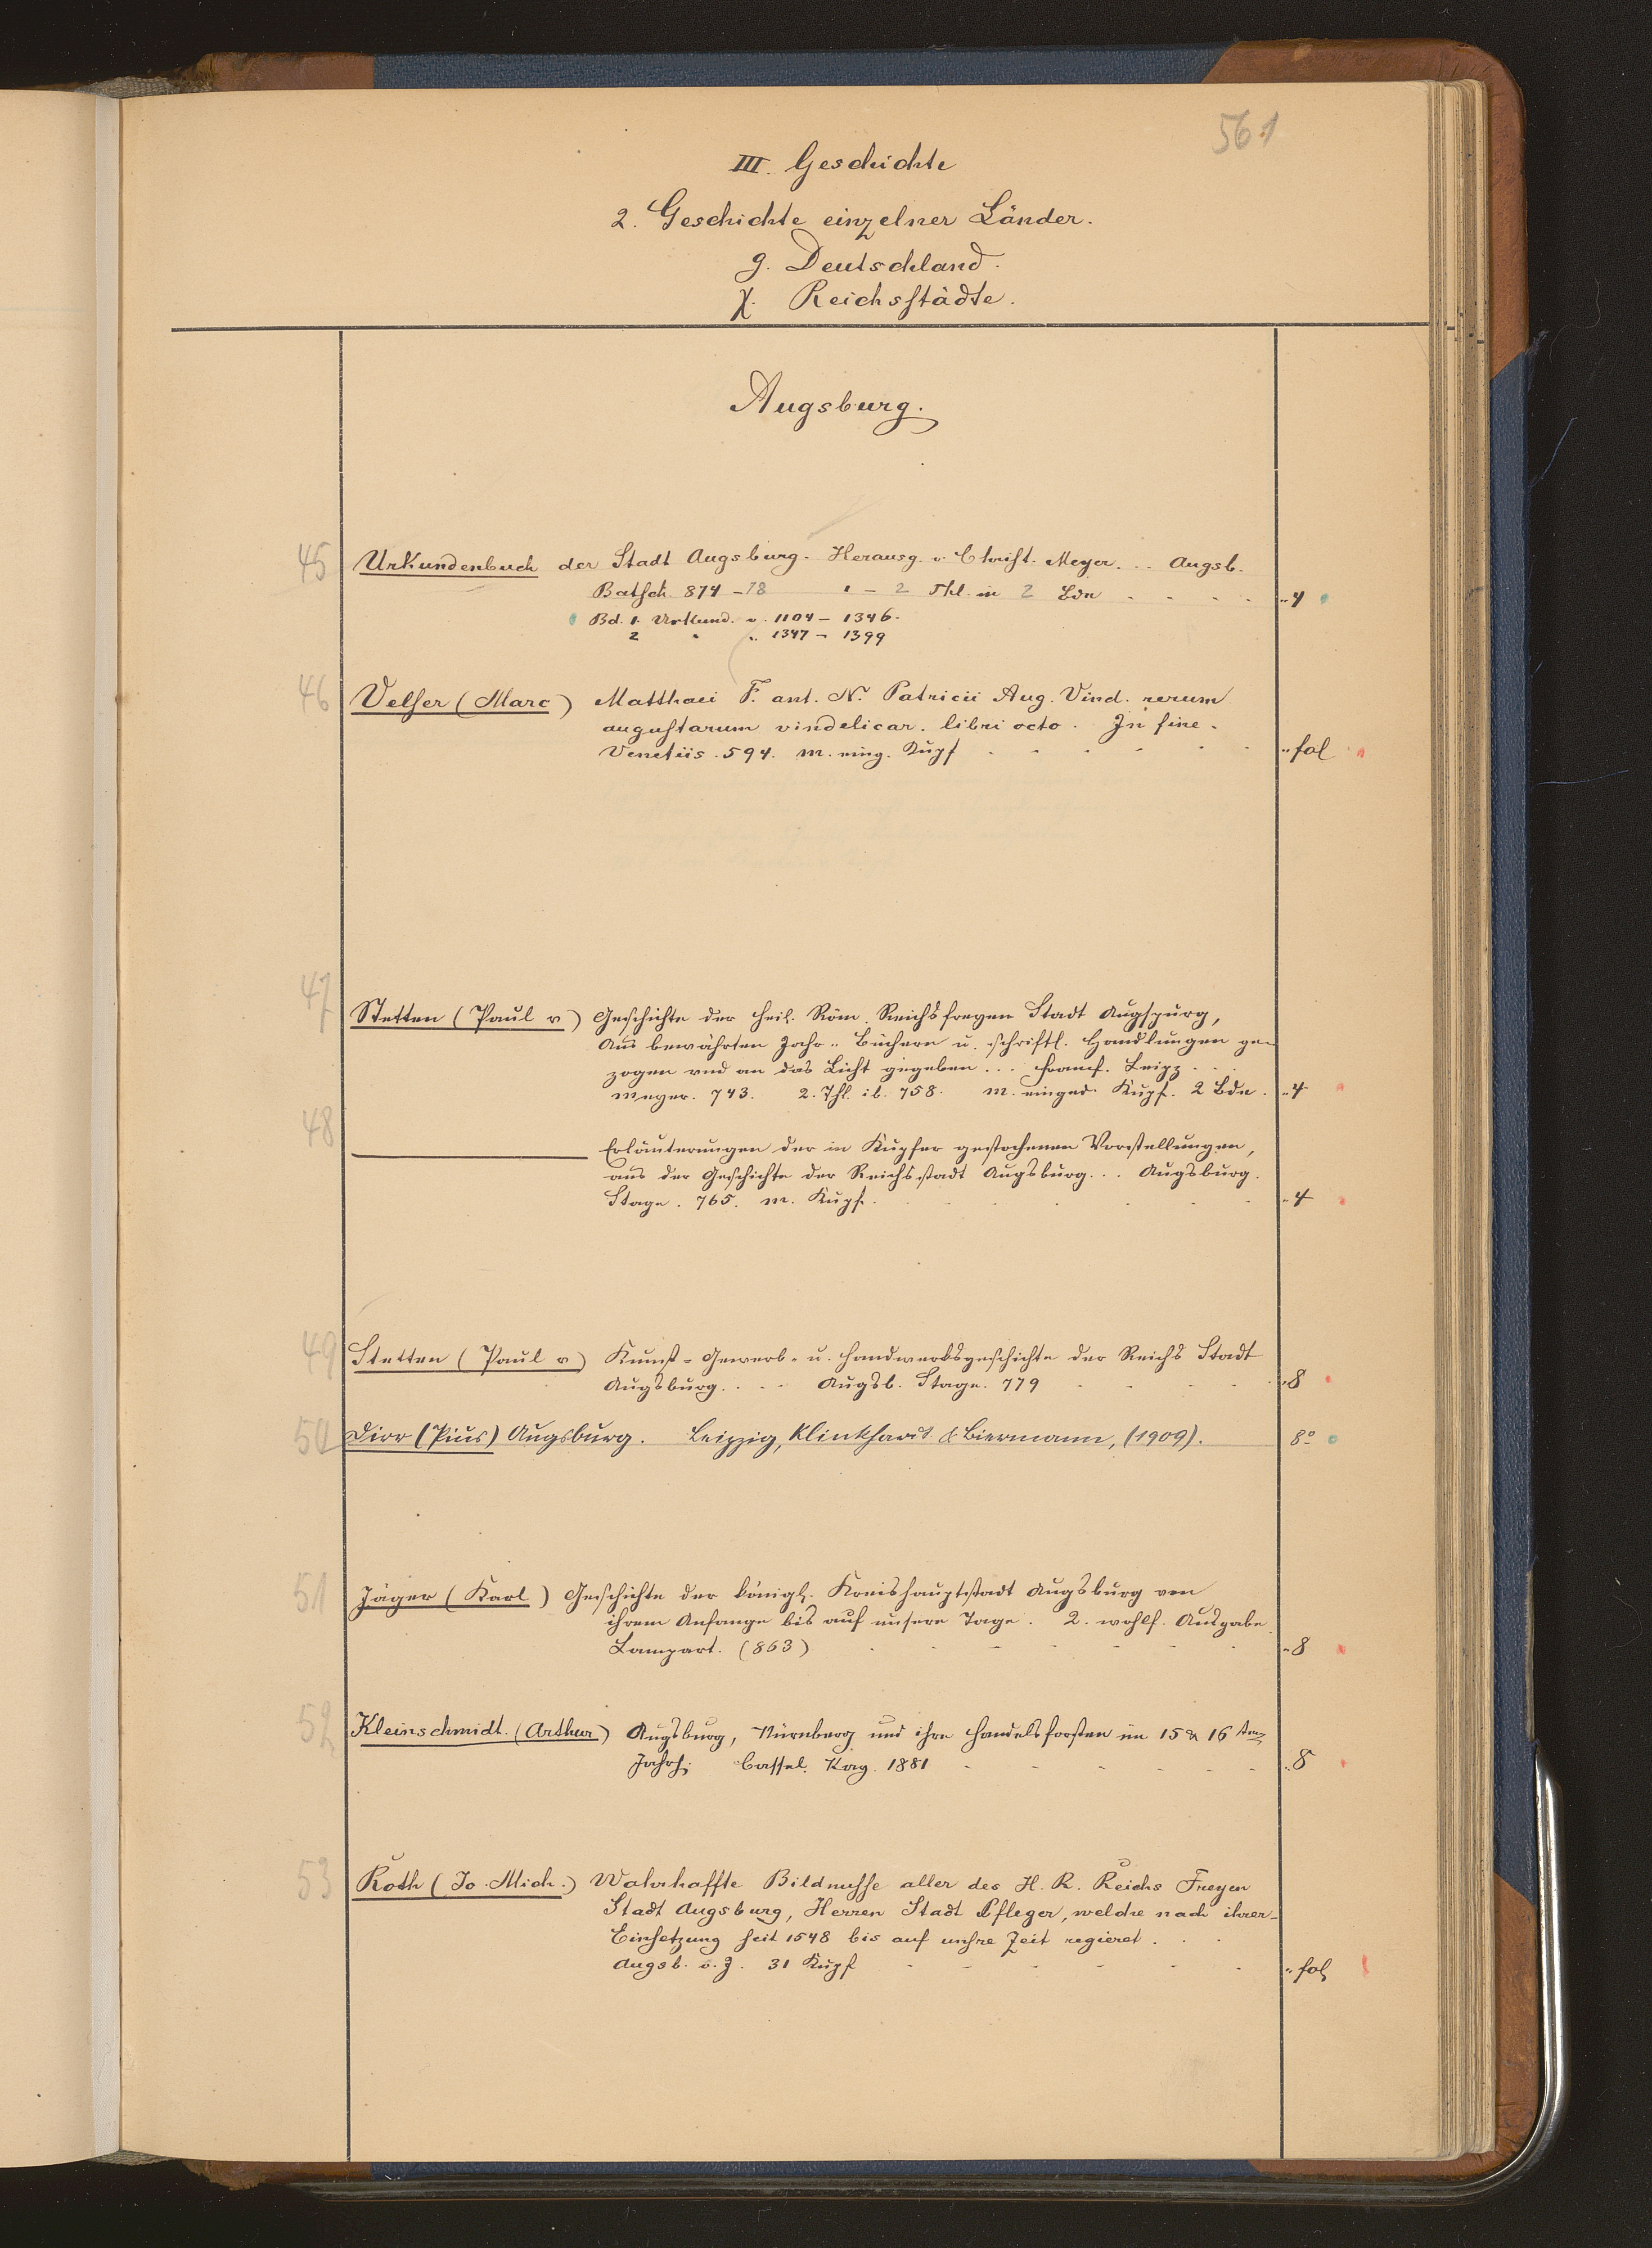 561
III. Geschichte
2. Geschichte einzelner Länder.
g. Deutschland.
χ. Reichsstädte.
Augsburg.
45 Urkundenbuch der Stadt Augsburg. Herausg. v. Christ. Meyer. .. Augsb.
Batsch 874-78 - 2 Thl. in 2 Bdn " 4
Bd. 1. Urkund. v. 1104 - 1346.
2 " " 1347 - 1399
46 Velser (Marc) Matthaei F. ant. N. Patricii Aug. Vind. rerum
augustarum vindelicar. libri octo. In fine.
Venetiis. 594. m. eing. Kupf " fol
47 Stetten (Paul v) Geschichte der Heil. Röm. Reichsfreyen Stadt Augspurg,
Aus bewährten Jahr- Büchern u. schriftl. Handlungen ge-
zogen und an das Licht gegeben ... Francf. Leipz. ..
Meyer. 743. 2. Thl. ib. 758. m. einged. Kupf. 2 Bde. " 4
48 Erläuterungen der in Kupfer gestochenen Vorstellungen,
aus der Geschichte der Reichsstadt Augsburg... Augsburg.
Stage. 765. m. Kupf. " 4
49 Stetten (Paul v) Kunst- Gewerb- u. Handwerksgeschichte der Reichs Stadt
Augsburg. . . . Augsb. Stage. 779 " 8
50 Dirr (Pius) Augsburg. Leipzig, Klinkhardt & Biermann, (1909). 8°
51 Jäger (Karl) Geschichte der königl. Kreishauptstadt Augsburg von
ihrem Anfange bis auf unsere Tage. 2. wohlf. Ausgabe.
Lampart. (863) " 8
52 Kleinschmidt. (Arthur) Augsburg, Nürnberg und ihre Handelsfürsten im 15 & 16 ten
Jahrh. Cassel. Kay. 1881 " 8
53 Roth (Jo. Mich.) Wahrhaffte Bildnusse aller des H. R. Reichs Freyen
Stadt Augsburg, Herren Stadt Pfleger, welche nach ihrer
Einsetzung seit 1548 bis auf unsre Zeit regieret . . .
Augsb. o. J. 31 Kupf " fol